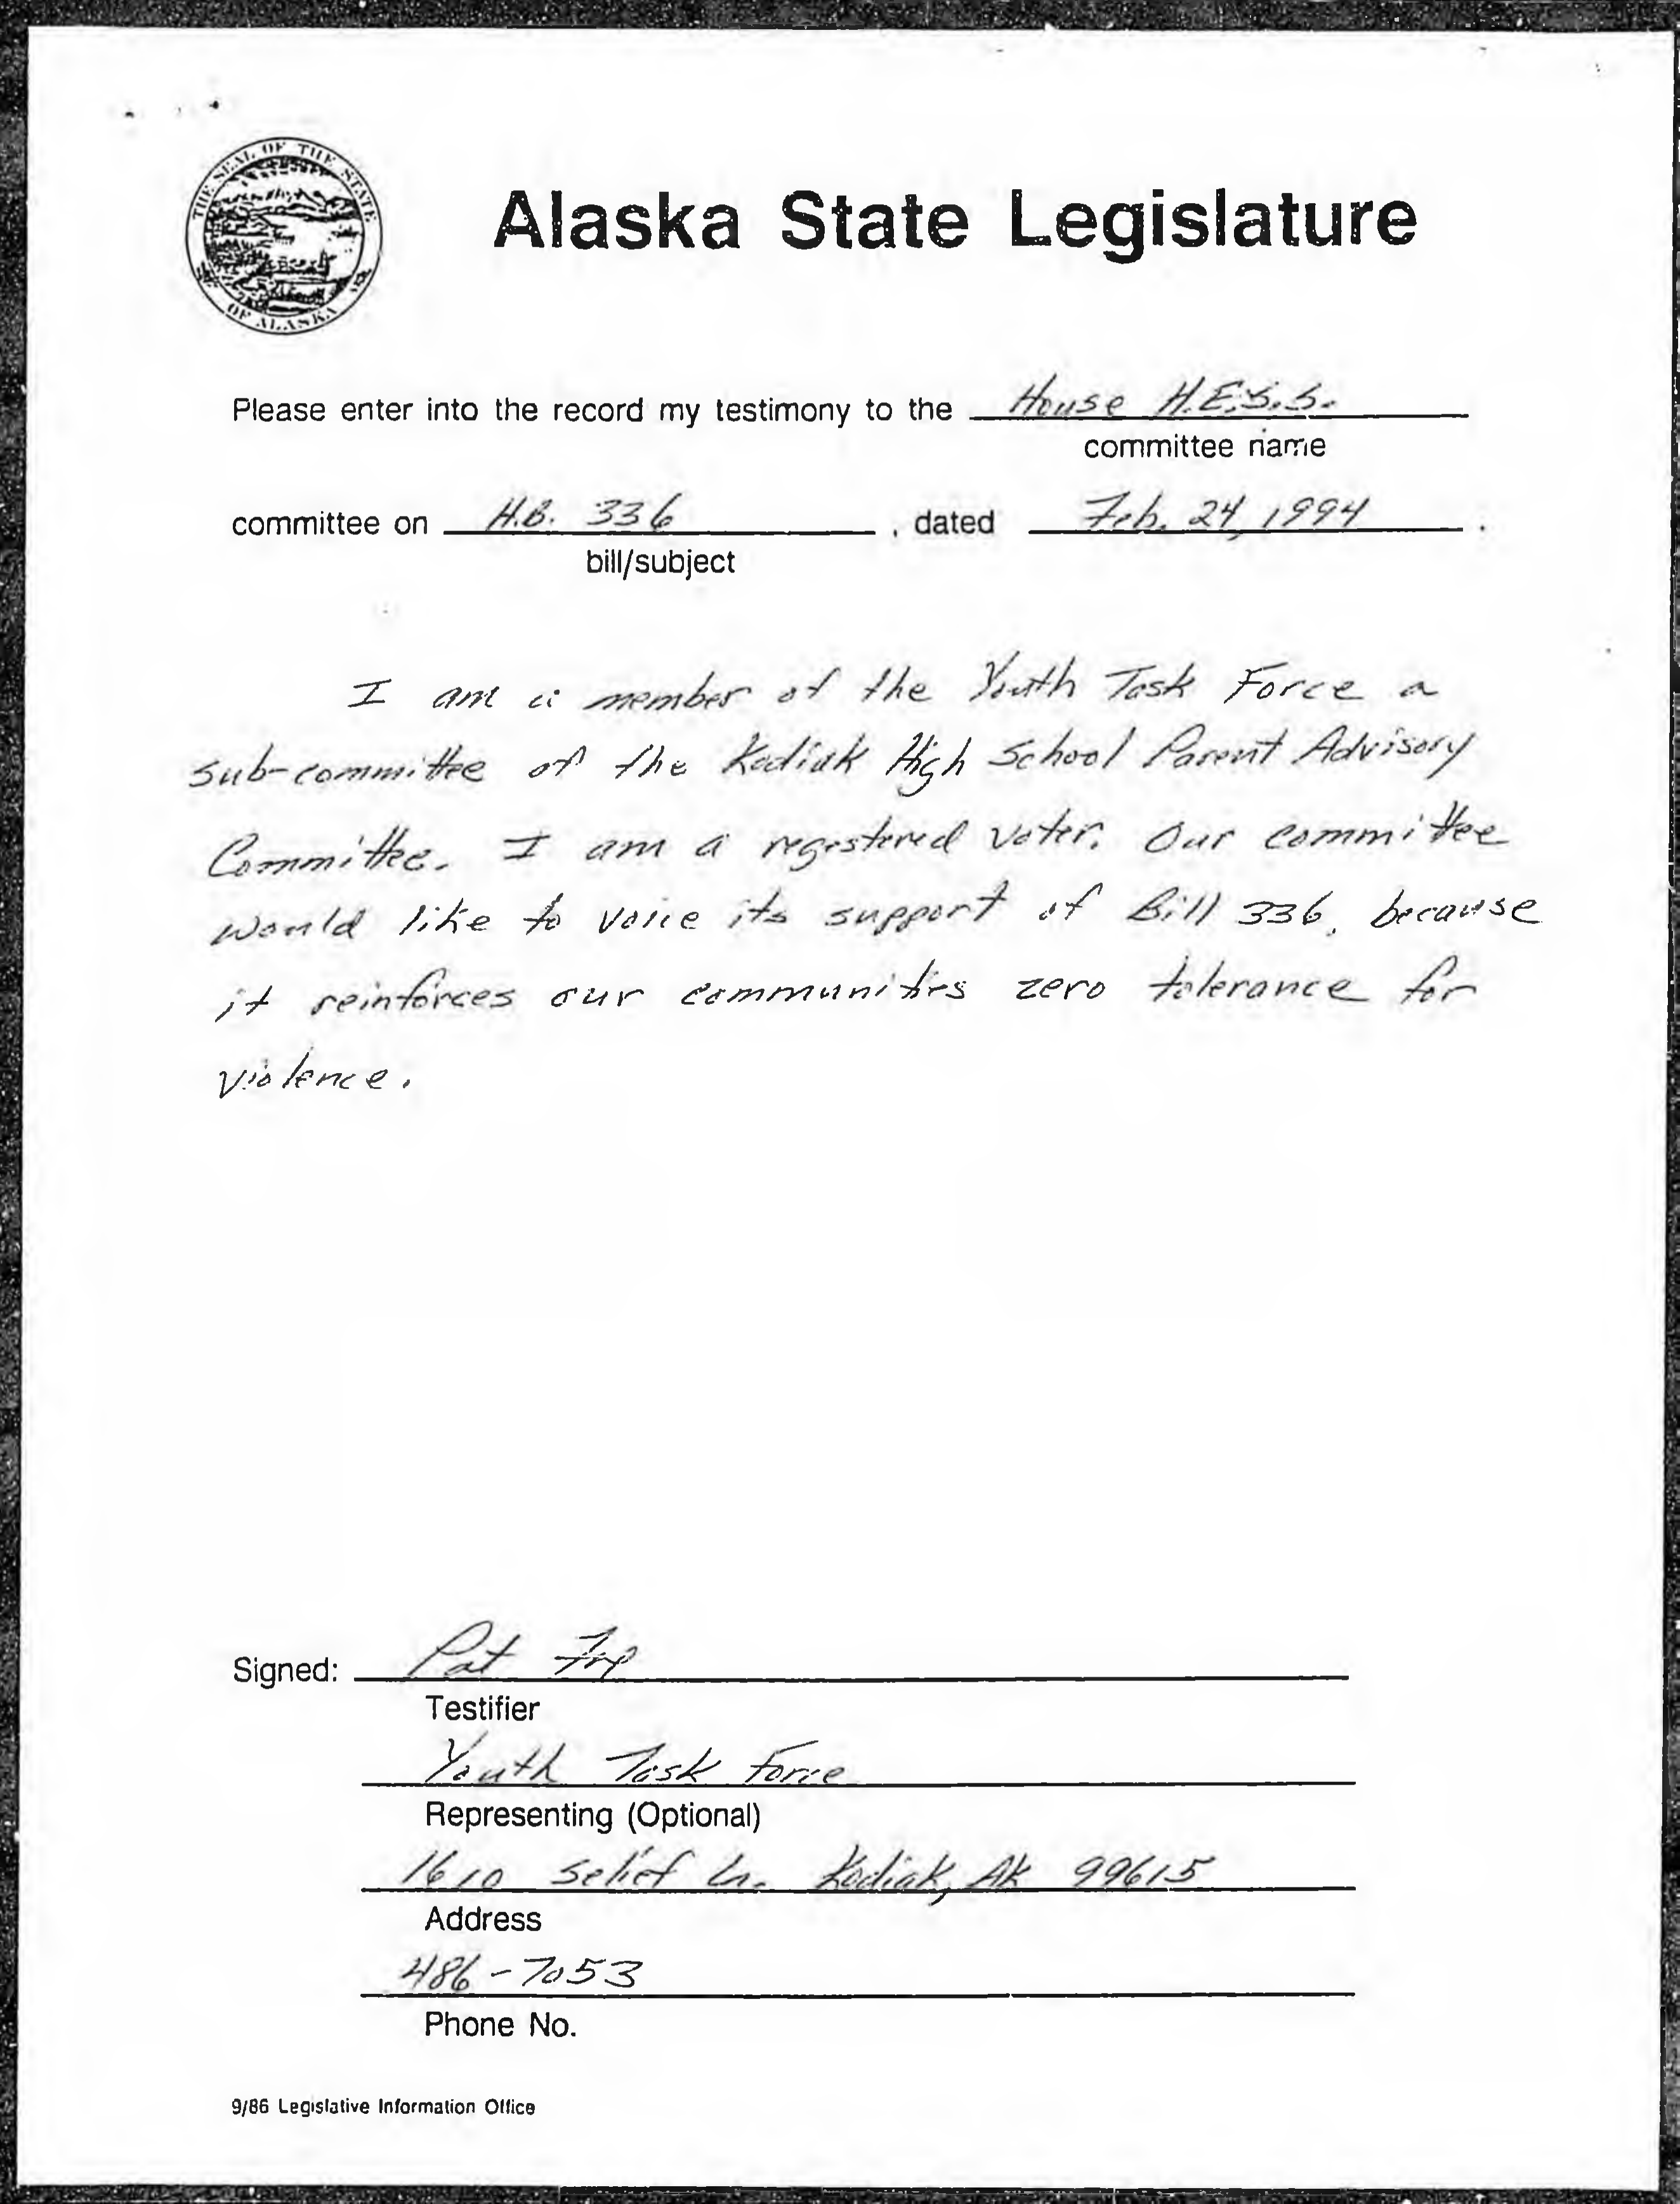 THE SEAL OF THE STATE OF ALASKA
Alaska State Legislature
Please enter into the record my testimony to the House H.E.S.S.
committee name
committee on H.B. 336 , dated Feb. 24, 1994 .
bill/subject
I am a member of the Youth Task Force a
sub-committee of the Kodiak High School Parent Advisory
Committee. I am a registered voter. Our committee
would like to voice its support of Bill 336, because
it reinforces our communities zero tolerance for
violence.
Signed: Pat
Testifier
Youth Task Force
Representing (Optional)
1610 Selief Ln. Kodiak, AK 99615
Address
486-7053
Phone No.
9/86 Legislative Information Office